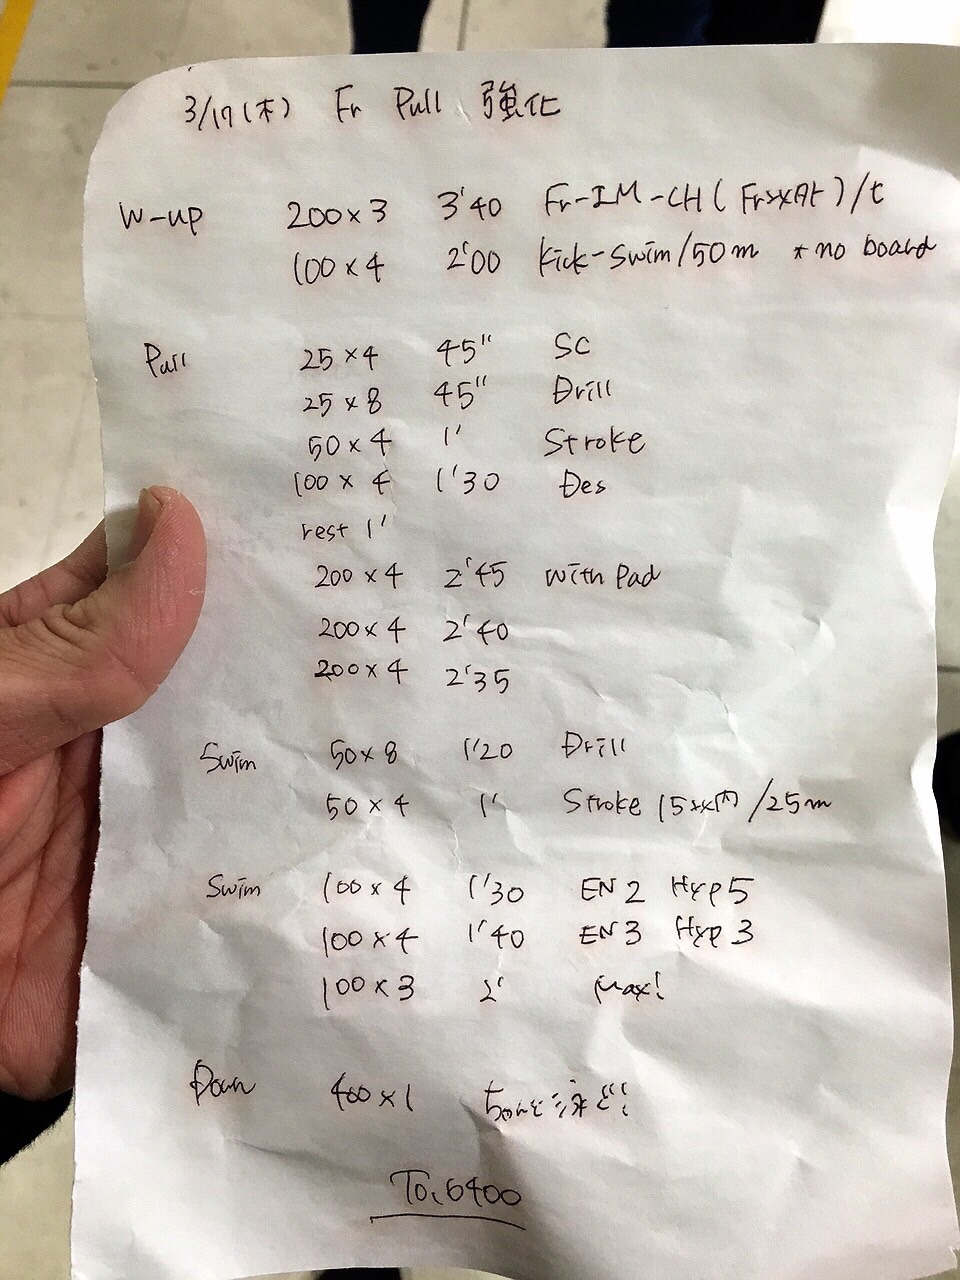 3/17(木) Fr Pull 強化
W-up 200×3 3'40 Fr-IM-CH(Fr以外)/t
100×4 2'00 Kick-Swim/50m *no board
Pull 25×4 45" SC
25×8 45" Drill
50×4 1' Stroke
100×4 1'30 Des
rest 1'
200×4 2'45 with Pad
200×4 2'40
200×4 2'35
Swim 50×8 1'20 Drill
50×4 1' Stroke 15以内/25m
Swim 100×4 1'30 EN2 Hyp5
100×4 1'40 EN3 Hyp3
100×3 2' Max!
Down 400×1 ちゃんと泳ぐ!
To.6400